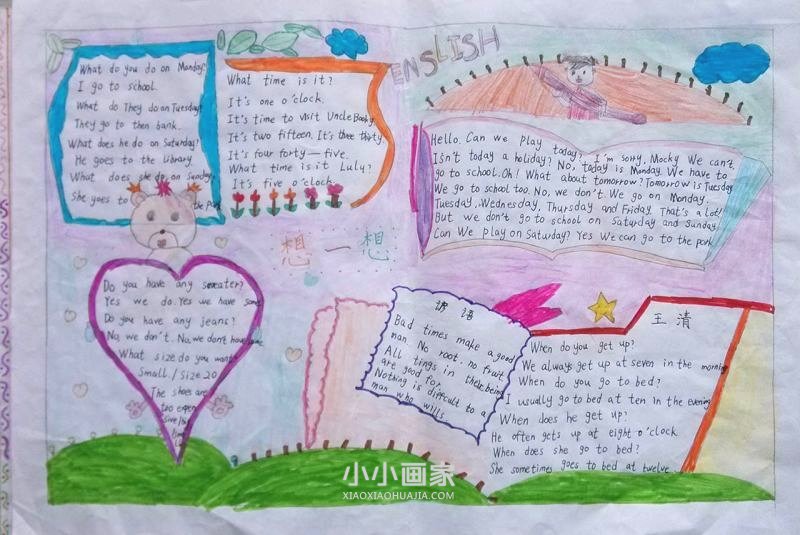 ENGLISH
What do you do on Monday?
I go to school.
What do They do on Tuesday?
They go to then bank.
What does he do on Saturday?
He goes to the Library.
What does she do on Sunday
She yoes to the park
What time is it?
It's one o'clock.
It's time to visit Uncle Booky.
It's two fifteen. It's three thirty.
It's four forty-five.
What time is it Lulu?
It's five o'clock.
Hello. Can we play today?
Isn't today a holiday? I'm sorry, Mocky We can't,
go to school. Oh! No, today is Monday. We have to
What about tomorrow? Tomorrow is Tuesday
We go to school too. No, we don't. We go on Monday,
Tuesday, Wednesday, Thursday and Friday. That's a lot!
But we don't go to school on Saturday and Sunday
Can We play on Saturday? Yes We can go to the park
想一想
Do you have any sweater?
Yes we do. Yes we have some
Do you have any jeans?
No, we don't. No, we don't have
What size do you want?
Small / Size 20
The shoes are
too expen
sive
谚语
Bad times make a good
man. No root, no fruit
All tings in their being
are good for,
Nothing is difficult to a
man who wills.
王清
When do you get up?
We always get up at seven in the morning
When do you go to bed?
I usually go to bed at ten in the evening
When does he get up?
He often gets up at eight o'clock.
When does she go to bed?
She sometimes goes to bed at twelve
小小画家
XIAOXIAOHUAJIA.COM